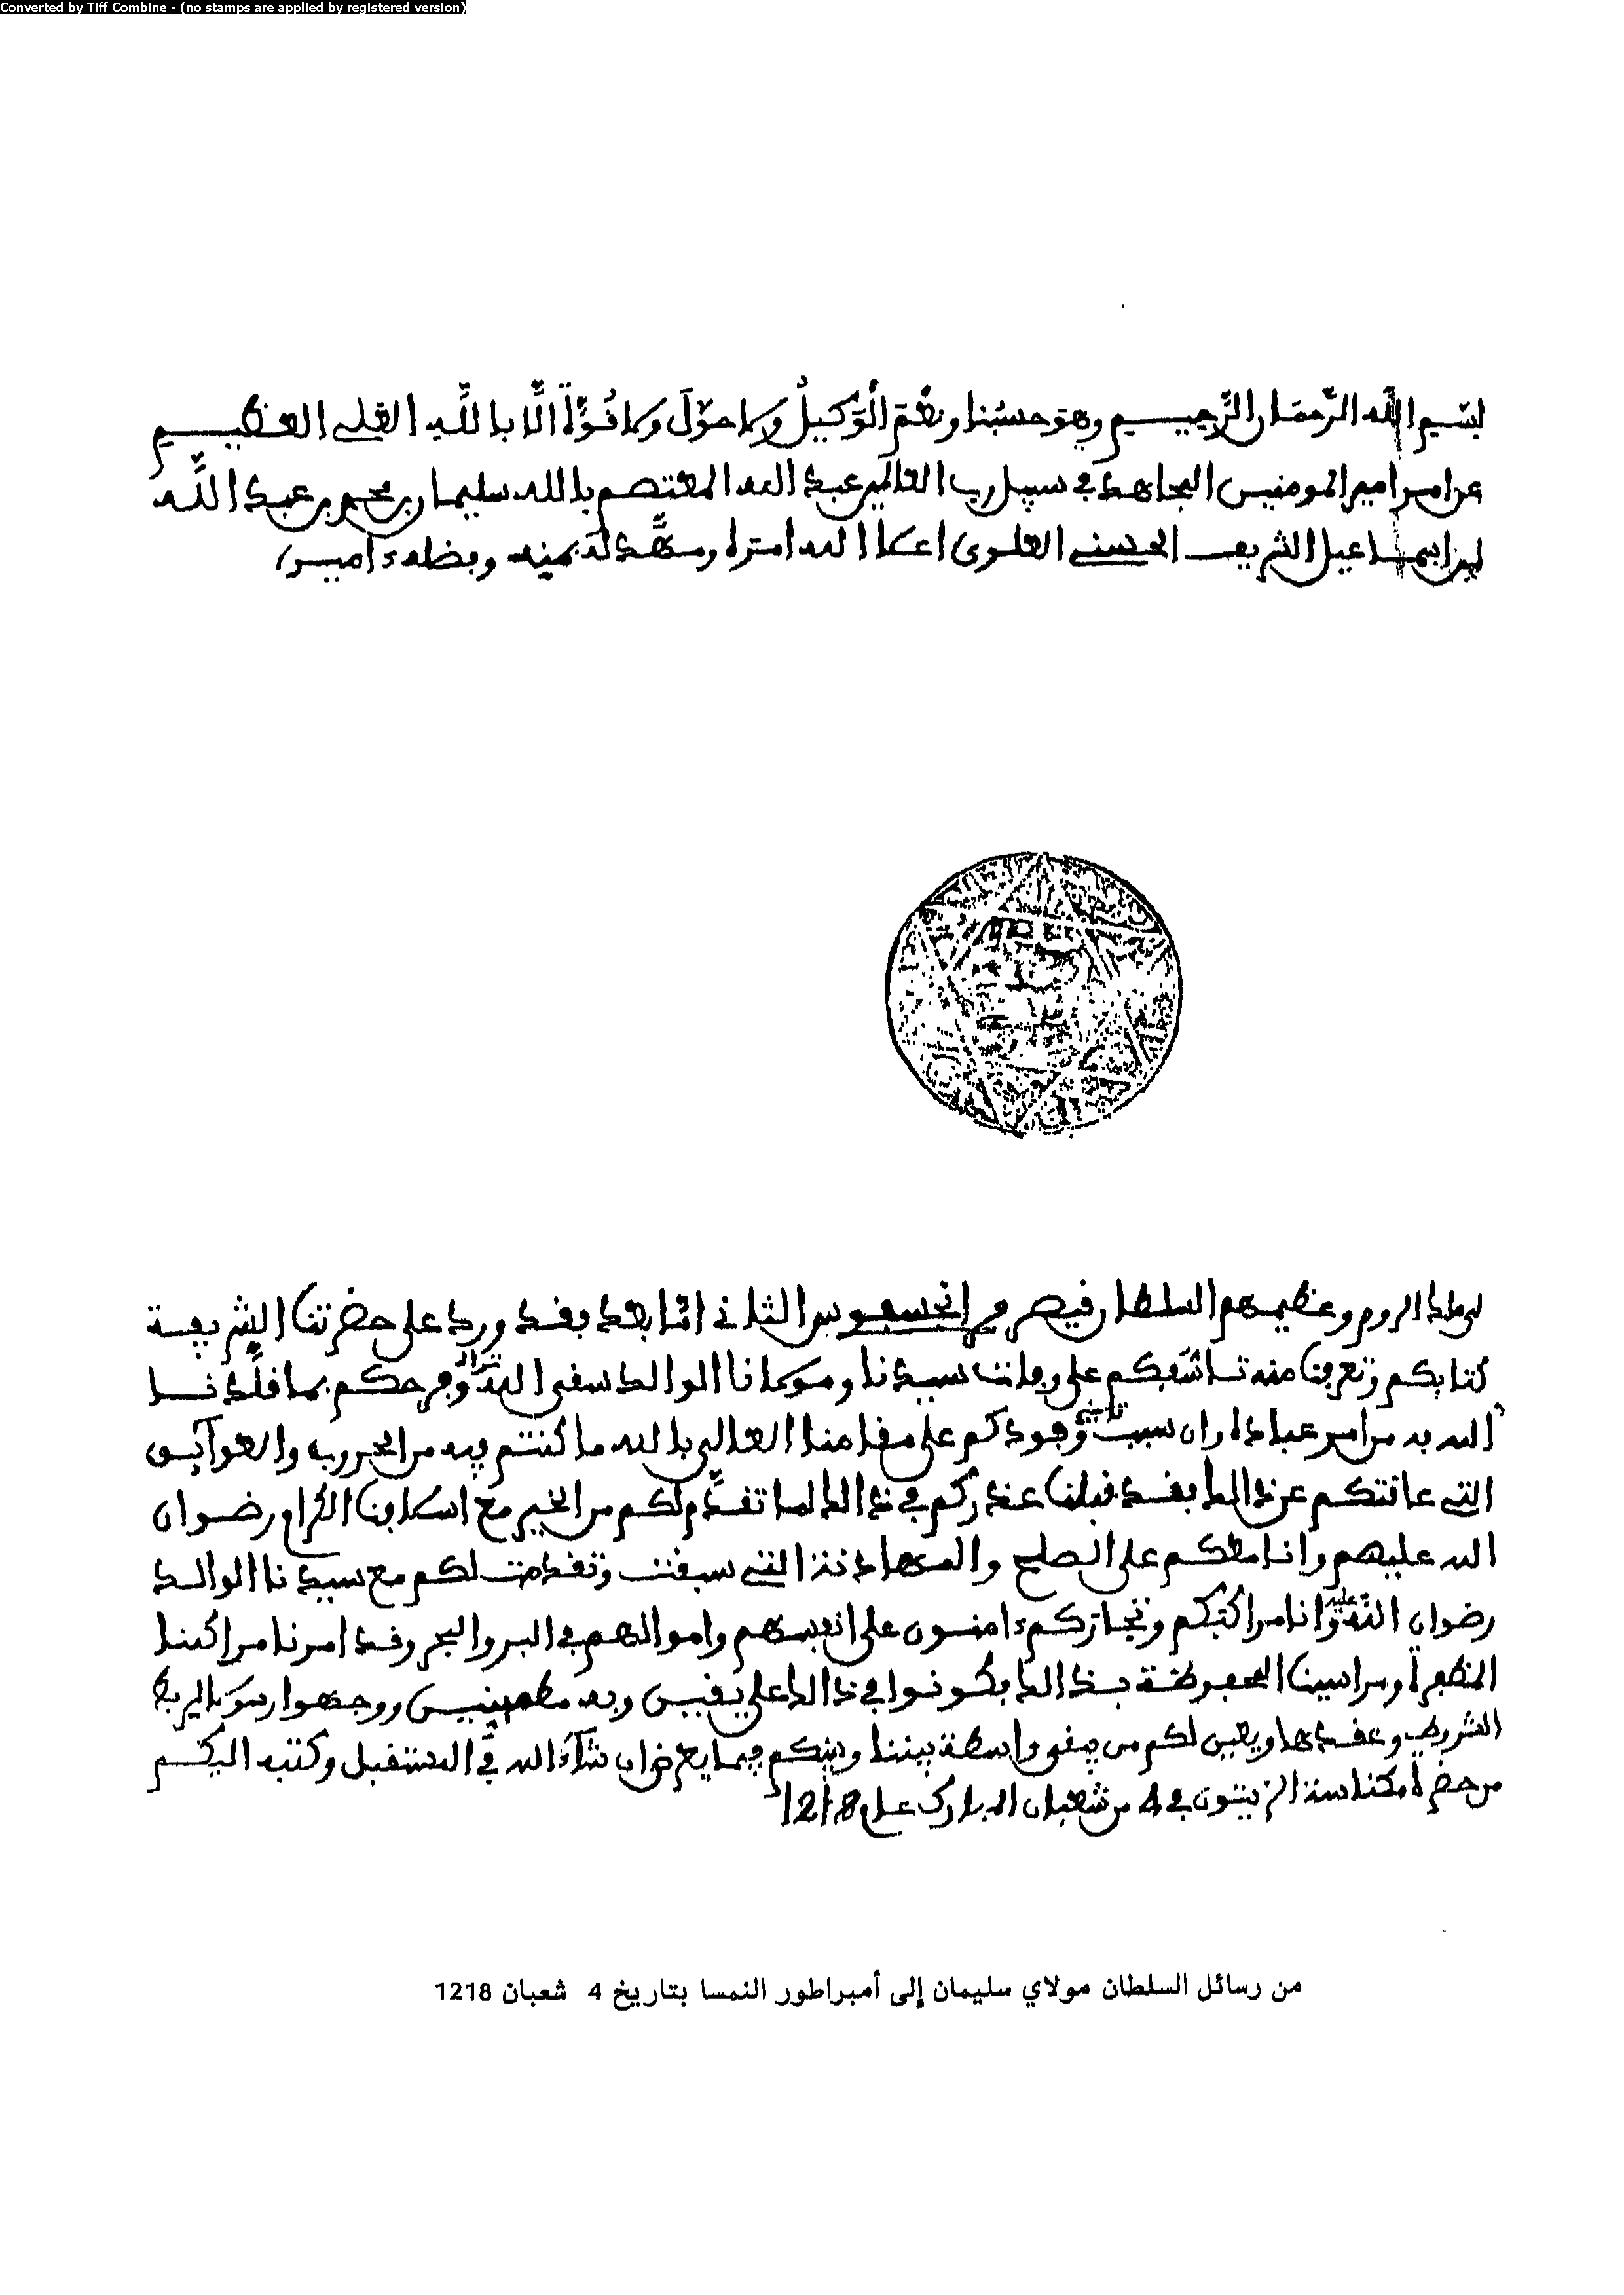 Converted by Tiff Combine - (no stamps are applied by registered version)
بسم الله الرحمان الرحيم وهو حسبنا ونعم الوكيل ولا حول ولا قوة الا بالله العلي العظيم
من امير المومنين المجاهد في سبيل رب العالمين عبد الله المعتصم بالله سليمان بن محمد بن عبد الله
بن اسماعيل الشريف الحسني العلوي اعلا الله امره بمنه وفضله ءامين
الروم وعظيمهم السلطان الثاني اما بعد فقد ورد على حضرتنا الشريفة
كتابكم وتعرفنا منه تاسفكم على وفات سيدنا ومولانا الوالد سقى الله ثراه وفرحكم بما قلدنا
الله به من امر عباده وان سبب كم على مقامنا العالي بالله ما كنتم فيه من الحروب والعوآيق
التي عاقتكم عن ذالك فقد قبلنا عذركم في ذالك لما تقدم لكم من الخير مع اسلافنا الكرام رضوان
الله عليهم وانا معكم على الصلح والمهادنة التي سبقت وتقدمت لكم مع سيدنا الوالد
رضوان الله عليه وانا مراكبكم وتجاركم ءامنون على انفسهم واموالهم في البر والبحر وقد امرنا مراكبنا
المنصورة ومراسينا المحفوظة بذالك فكونوا في ذالك على يقين وبه مطمينين ووجهوا رسولا
الشروط وعقدها ويعين لكم من يبقى واسطة بيننا وبينكم فيما يعرض ان شآء الله في المستقبل وكتبه اليكم
من حضرة مكناسة الزيتون في 4 من شعبان المبارك عام 1218
من رسائل السلطان مولاي سليمان إلى أمبراطور النمسا بتاريخ 4 شعبان 1218